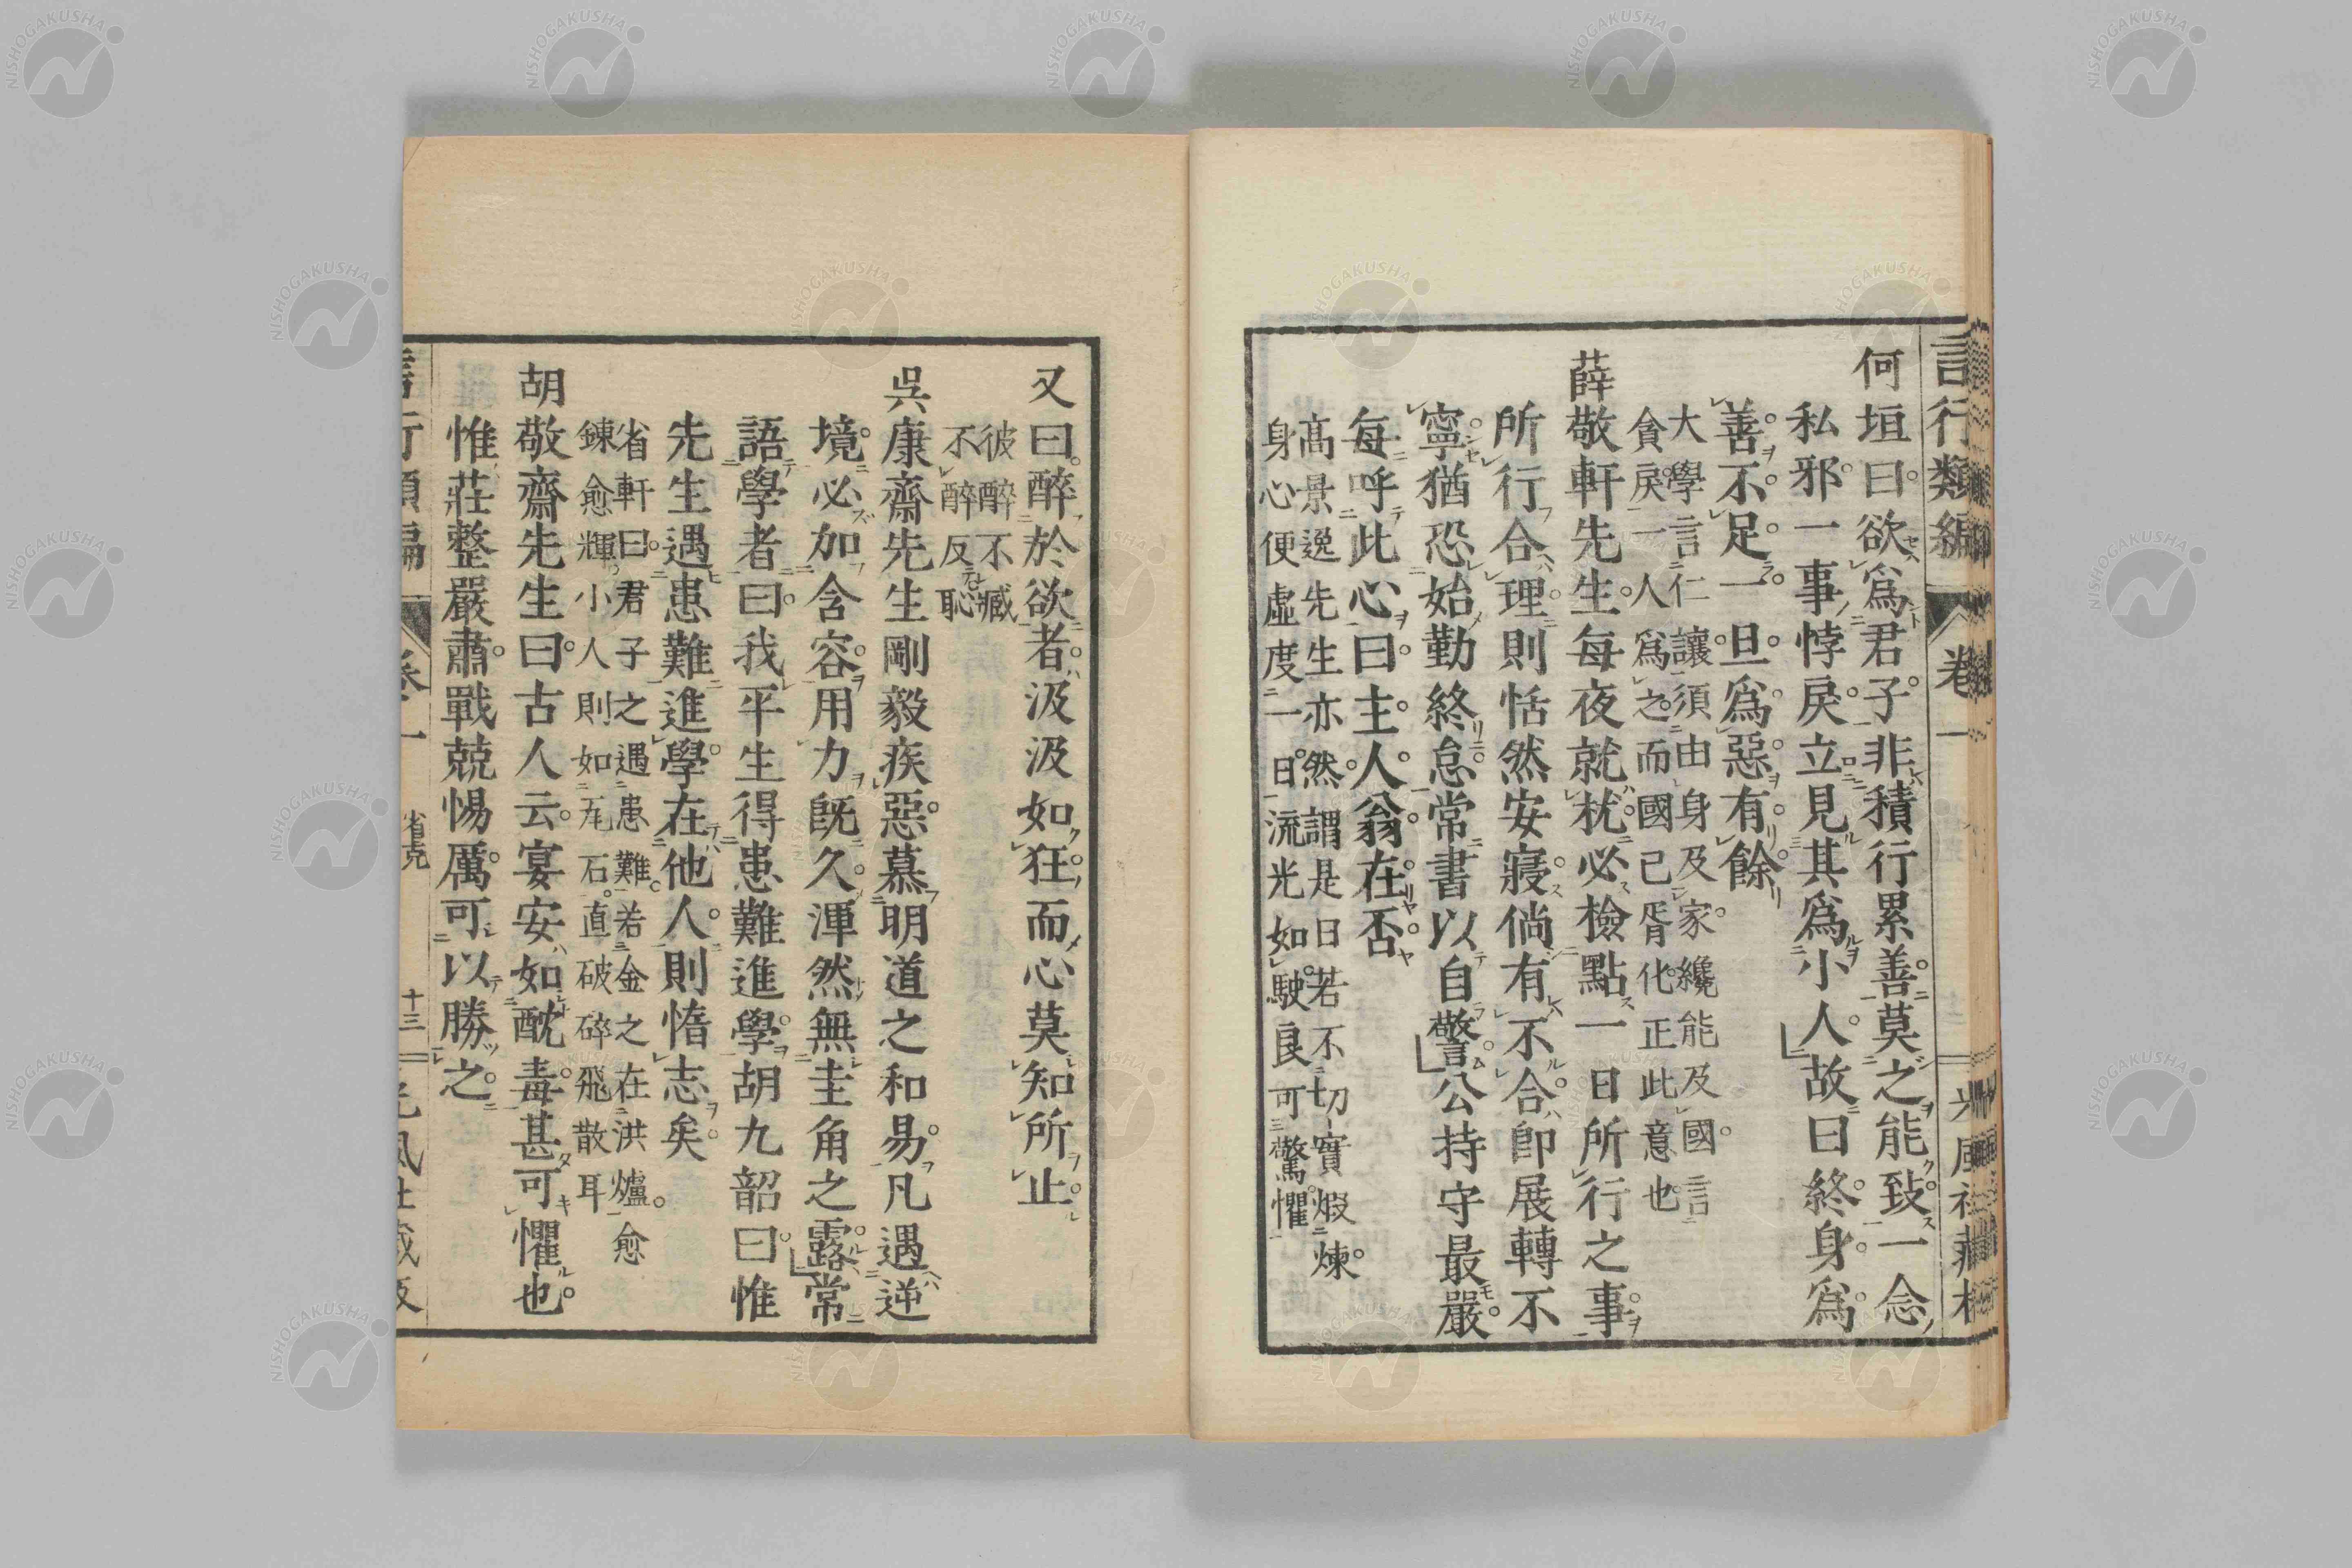 言行類編 卷一
何垣曰欲爲君子非積行累善莫之能致一念
私邪一事悖戾立見其爲小人故曰終身爲
善不足一旦爲惡有餘
大學言仁讓須由身及家纔能及國言
貪戾一人爲之而國已胥化正此意也
薛敬軒先生每夜就枕必檢點一日所行之事
所行合理則恬然安寢倘有不合卽展轉不
寧猶恐始勤終怠常書以自警公持守最嚴
每呼此心曰主人翁在否
高景逸先生亦然謂是日若不切實煆煉
身心便虛度一日流光如駛良可驚懼
又曰醉於欲者汲汲如狂而心莫知所止
彼醉不臧
不醉反恥
吳康齋先生剛毅疾惡慕明道之和易凡遇逆
境必加含容用力旣久渾然無圭角之露常
語學者曰我平生得患難進學胡九韶曰惟
先生遇患難進學在他人則惰志矣
省軒曰君子之遇患難若金之在洪爐愈
鍊愈輝小人則如瓦石直破碎飛散耳
胡敬齋先生曰古人云宴安如酖毒甚可懼也
惟莊整嚴肅戰兢惕厲可以勝之
言行類編 卷一 省克 十三
NISHOGAKUSHA